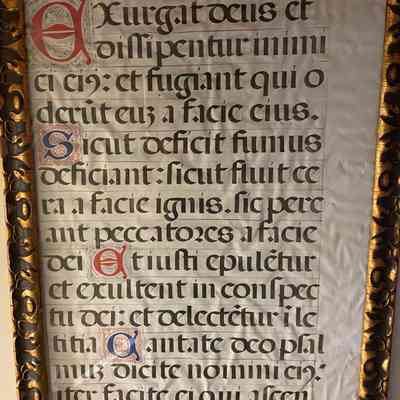 Exurgat deus et
dissipentur inimi
ci ciꝰ: et fugiant qui o
derūt euȝ a facie eius.
Sicut deficit fumus
deficiant: sicut fluit ce
ra a facie ignis. sic pere
ant peccatores a facie
dei Et iusti epulētur
et exultent in conspec
tu dei: et delectētur ī le
titia Cantate deo psal
muȝ dicite nomini eiꝰ:
iter facite ei qui ascen